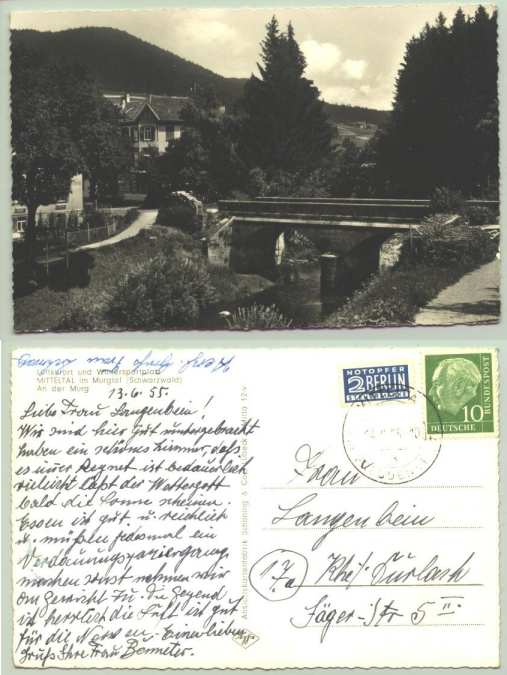 Luftkurort und Wintersportplatz
MITTELTAL im Murgtal (Schwarzwald)
An der Murg
13.6.55.
Liebe Frau Langenbein!
Wir sind hier gut untergebracht
haben ein schönes Zimmer, daß
es immer Regnet ist bedauerlich
vieleicht läßt der Wettergott
bald die Sonne scheinen.
Essen ist gut u. reichlich
u. müßen jedesmal ein
Verdauungspaziergang
machen sonst nehmen wir
am Gewicht zu. Die Gegend
ist herrlich die Luft ist gut
für die Nerven. Einen lieben
Gruß Ihre Frau
NOTOPFER
2 BERLIN
STEUERMARKE
DEUTSCHE
BUNDESPOST
10
Frau
Langenbein
17a
Khe/ Durlach
Jäger-Str 5 II
Agfa